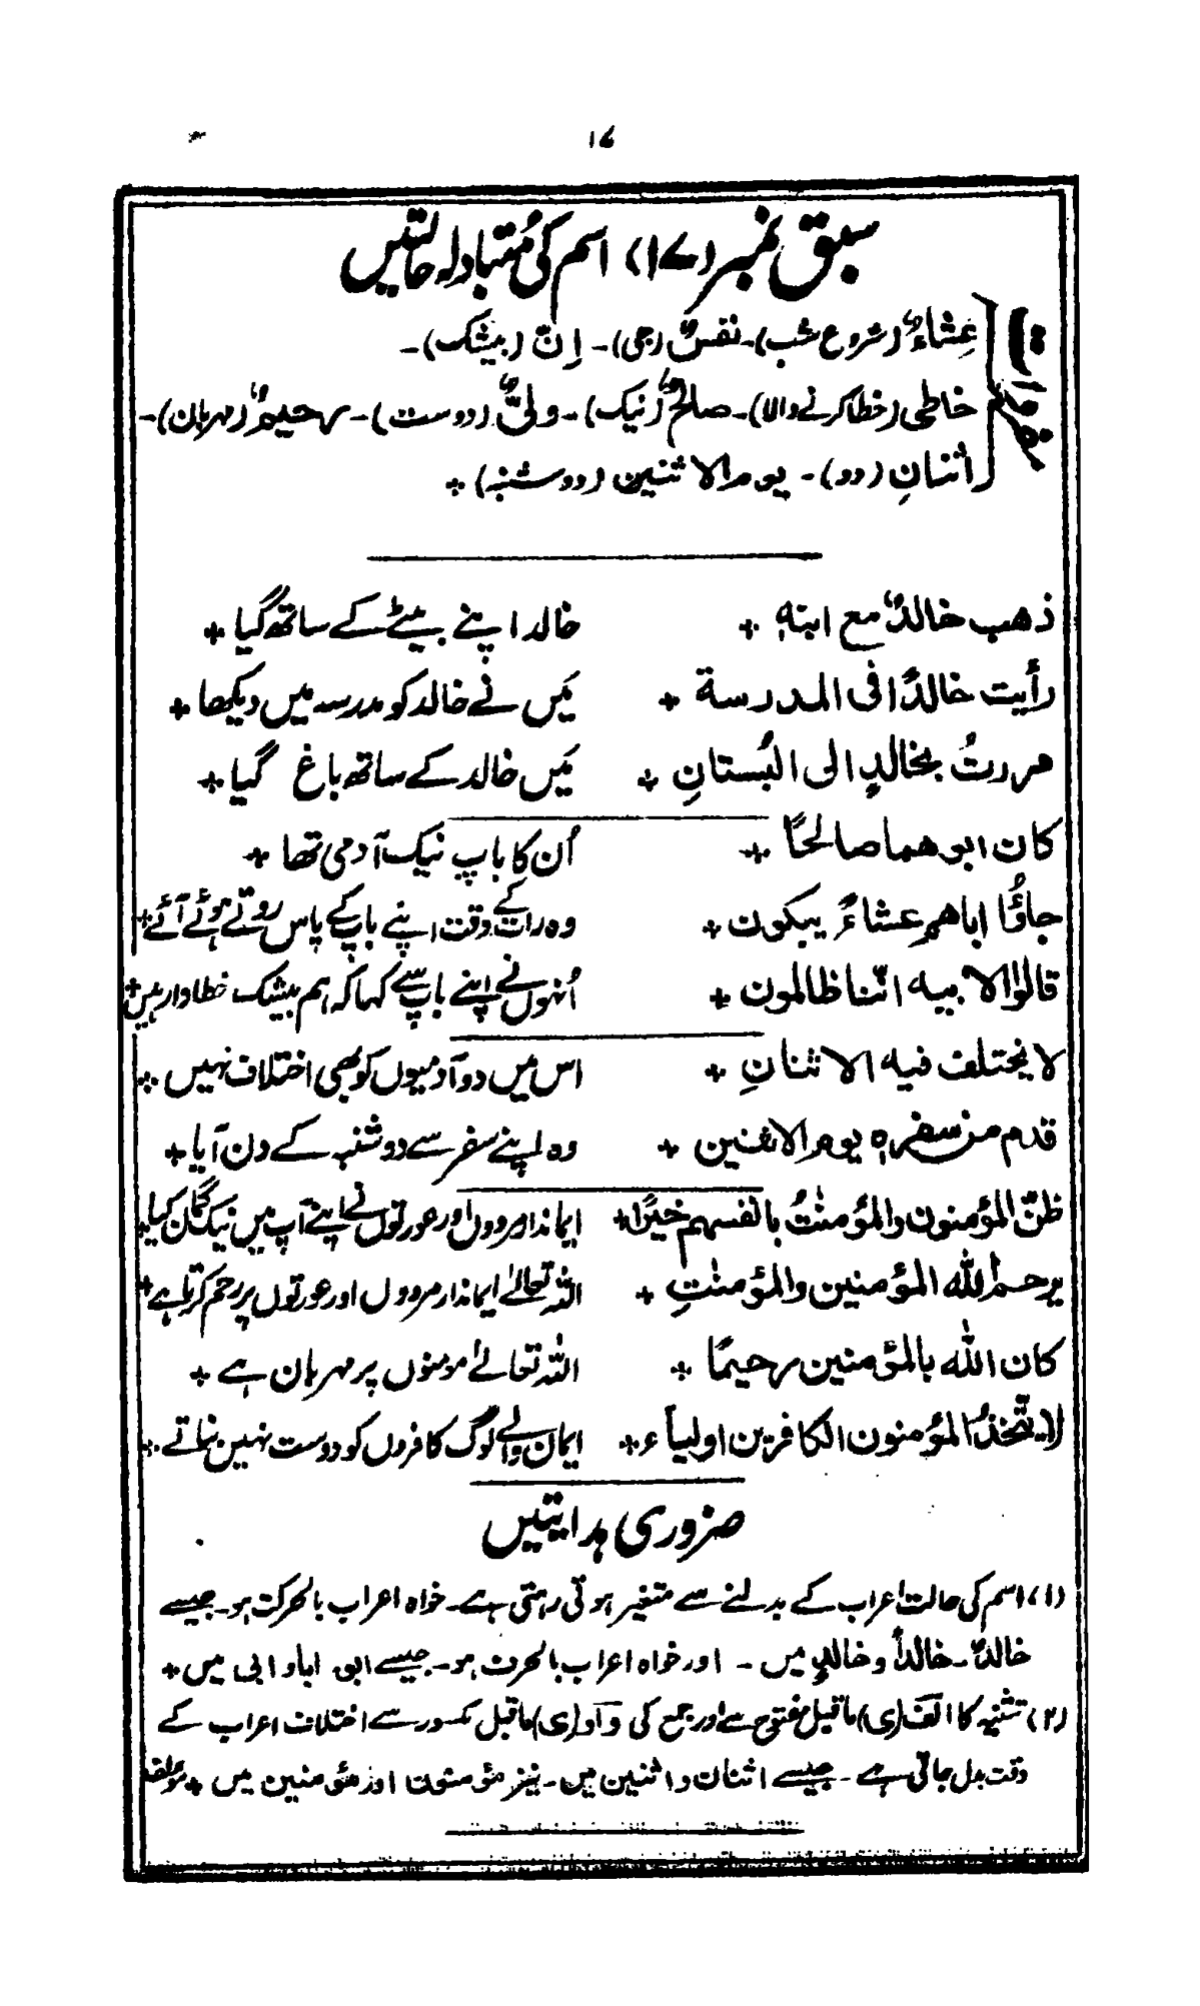 ۱۷
سبق نمبر (۱۷) اسم کی مُتبادلہ حالتیں
مفردات
عِشاءٌ (شروع شب)۔ نفسٌ (جی)۔ اِنّ (بیشک)۔
خاطی (خطا کرنے والا)۔ صالحٌ (نیک)۔ ولیٌّ (دوست)۔ رحیمٌ (مہربان)۔
اثنانِ (دو)۔ یوم الاثنین (دوشنبہ) ٭
ذھب خالدٌ مع ابنہٖ ٭ خالد اپنے بیٹے کے ساتھ گیا ٭
رأیت خالدًا فی المدرسة ٭ مَیں نے خالد کو مدرسہ میں دیکھا ٭
مررتُ بخالدٍ الی البُستانِ ٭ مَیں خالد کے ساتھ باغ گیا ٭
کان ابوھما صالحًا ٭ اُن کا باپ نیک آدمی تھا ٭
جاؤُا اباھم عشاءً یبکون ٭ وہ رات کے وقت اپنے باپ کے پاس روتے ہوئے آئے ٭
قالوا لابیہ انّنا ظالمون ٭ اُنہوں نے اپنے باپ سے کہا کہ ہم بیشک خطادار ہیں ٭
لا یختلف فیہ الاثنانِ ٭ اس میں دو آدمیوں کو بھی اختلاف نہیں ٭
قدم من سفرہٖ یوم الاثنین ٭ وہ اپنے سفر سے دوشنبہ کے دن آیا ٭
ظنّ المؤمنون والمؤمنٰتُ بانفسہم خیرًا ٭ ایماندار مردوں اور عورتوں نے اپنے آپ میں نیک گمان کیا ٭
یرحم اللہ المؤمنین والمؤمنٰتِ ٭ اللہ تعالےٰ ایماندار مردوں اور عورتوں پر رحم کرتا ہے ٭
کان اللہ بالمؤمنین رحیمًا ٭ اللہ تعالےٰ مومنوں پر مہربان ہے ٭
لا یتّخذُ المؤمنون الکافرین اولیاء ٭ ایمان والے لوگ کافروں کو دوست نہیں بناتے ٭
ضروری ہدایتیں
(۱) اسم کی حالت اعراب کے بدلنے سے متغیر ہوتی رہتی ہے۔ خواہ اعراب بالحرکت ہو۔ جیسے
خالدٌ۔ خالداً و خالدٍ میں۔ اور خواہ اعراب بالحرف ہو۔ جیسے ابو، ابا و ابی میں ٭
(۲) تثنیہ کا الف (ی) ماقبل مفتوح سے اور جمع کی واو (ی) ماقبل مکسور سے اختلاف اعراب کے
وقت بدل جاتی ہے۔ جیسے اثنان و اثنین میں۔ نیز مؤمنون اور مؤمنین میں ٭ مؤلف